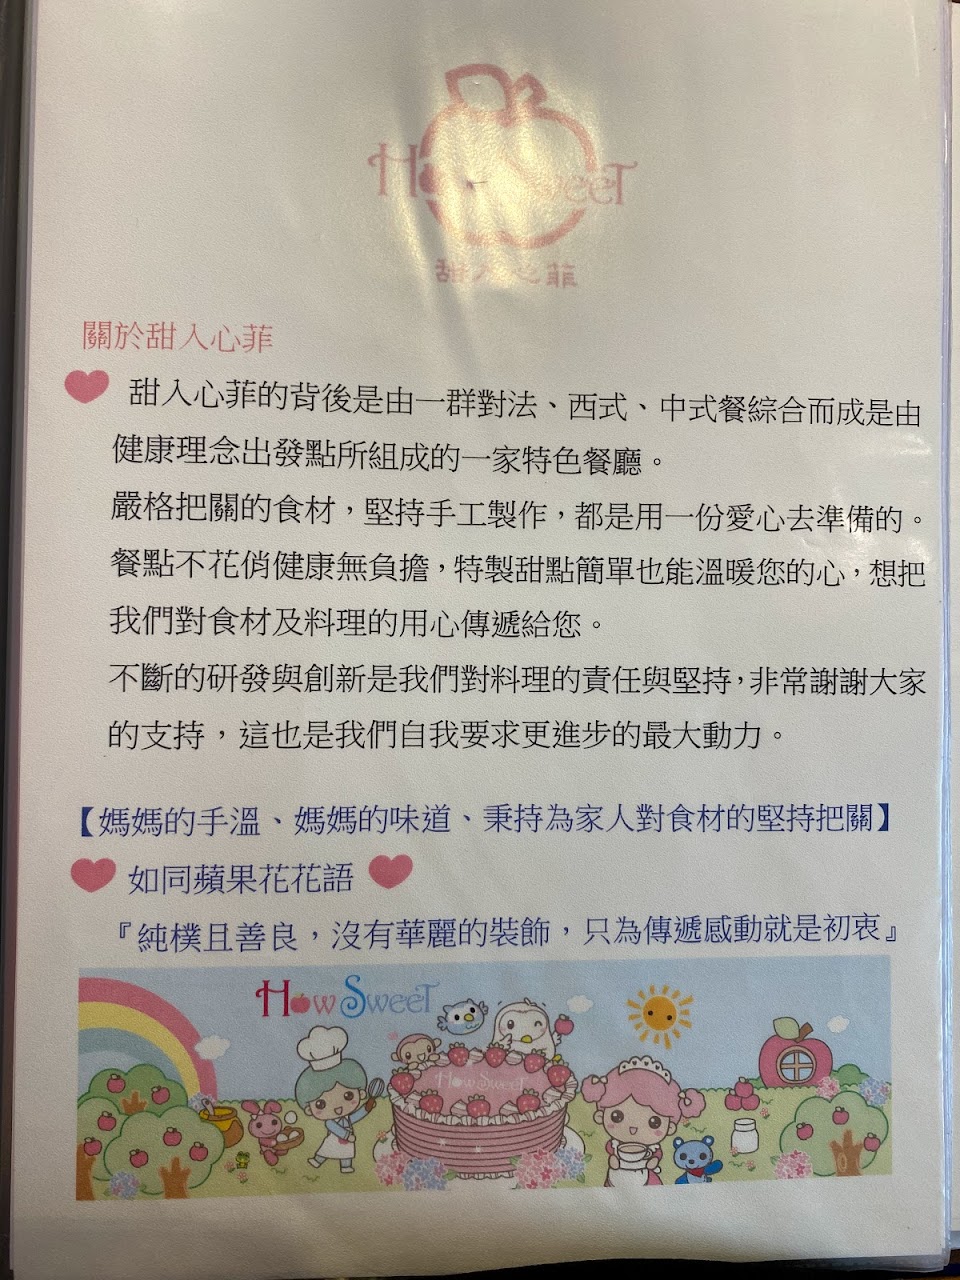 How Sweet
甜入心菲
關於甜入心菲
甜入心菲的背後是由一群對法、西式、中式餐綜合而成是由
健康理念出發點所組成的一家特色餐廳。
嚴格把關的食材，堅持手工製作，都是用一份愛心去準備的。
餐點不花俏健康無負擔，特製甜點簡單也能溫暖您的心，想把
我們對食材及料理的用心傳遞給您。
不斷的研發與創新是我們對料理的責任與堅持，非常謝謝大家
的支持，這也是我們自我要求更進步的最大動力。
【媽媽的手溫、媽媽的味道、秉持為家人對食材的堅持把關】
如同蘋果花花語
『純樸且善良，沒有華麗的裝飾，只為傳遞感動就是初衷』
How Sweet
How Sweet